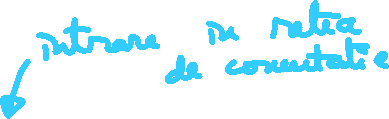 intrare în retea
de comutatie